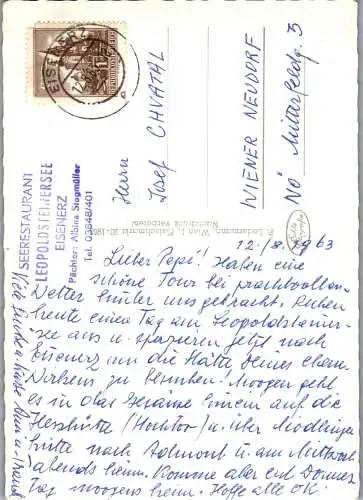 EISENERZ
Herrn
Josef CHVATAL
WIENER NEUDORF
NÖ Mitterfeldg. 3
SEERESTAURANT
LEOPOLDSTEINERSEE
EISENERZ
Pächter: Albina Stogmüller
Tel. 03848/401
P. Ledermann, Wien I, Fleischmarkt 20
Nachdruck verboten!
12./8. 1963
Lieber Pepi! Haben eine
schöne Tour bei prachtvollem
Wetter hinter uns gebracht. Ruhen
heute einen Tag am Leopoldsteiner-
See aus u. spazieren jetzt nach
Eisenerz um die Stätte Deines ehem.
Wirkens zu besuchen. Morgen geht
es in das Gesäuse hinein auf die
Hesshütte (Hochtor) u. über Mödlinger-
hütte nach Admont u. am Mittwoch
abends heim. Komme aber erst Donners
Tag morgens heim. Hoffe alle OK.
Viele Grüße